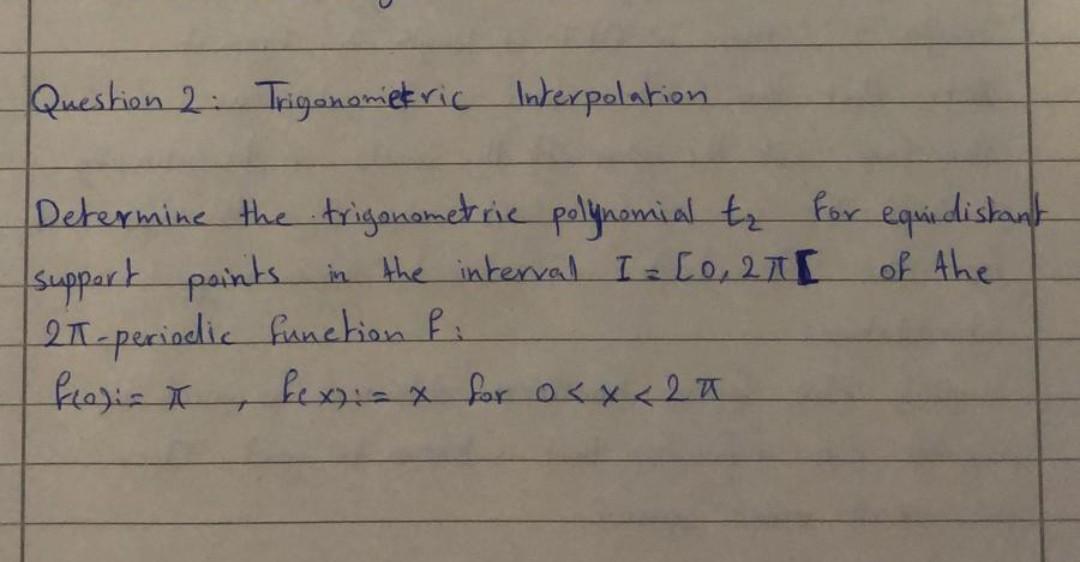 Question 2: Trigonometric Interpolation
Determine the trigonometric polynomial t₂ for equidistant
support points in the interval I = [0, 2π[ of the
2π-periodic function f:
f(0):= π , f(x):= x for 0 < x < 2π